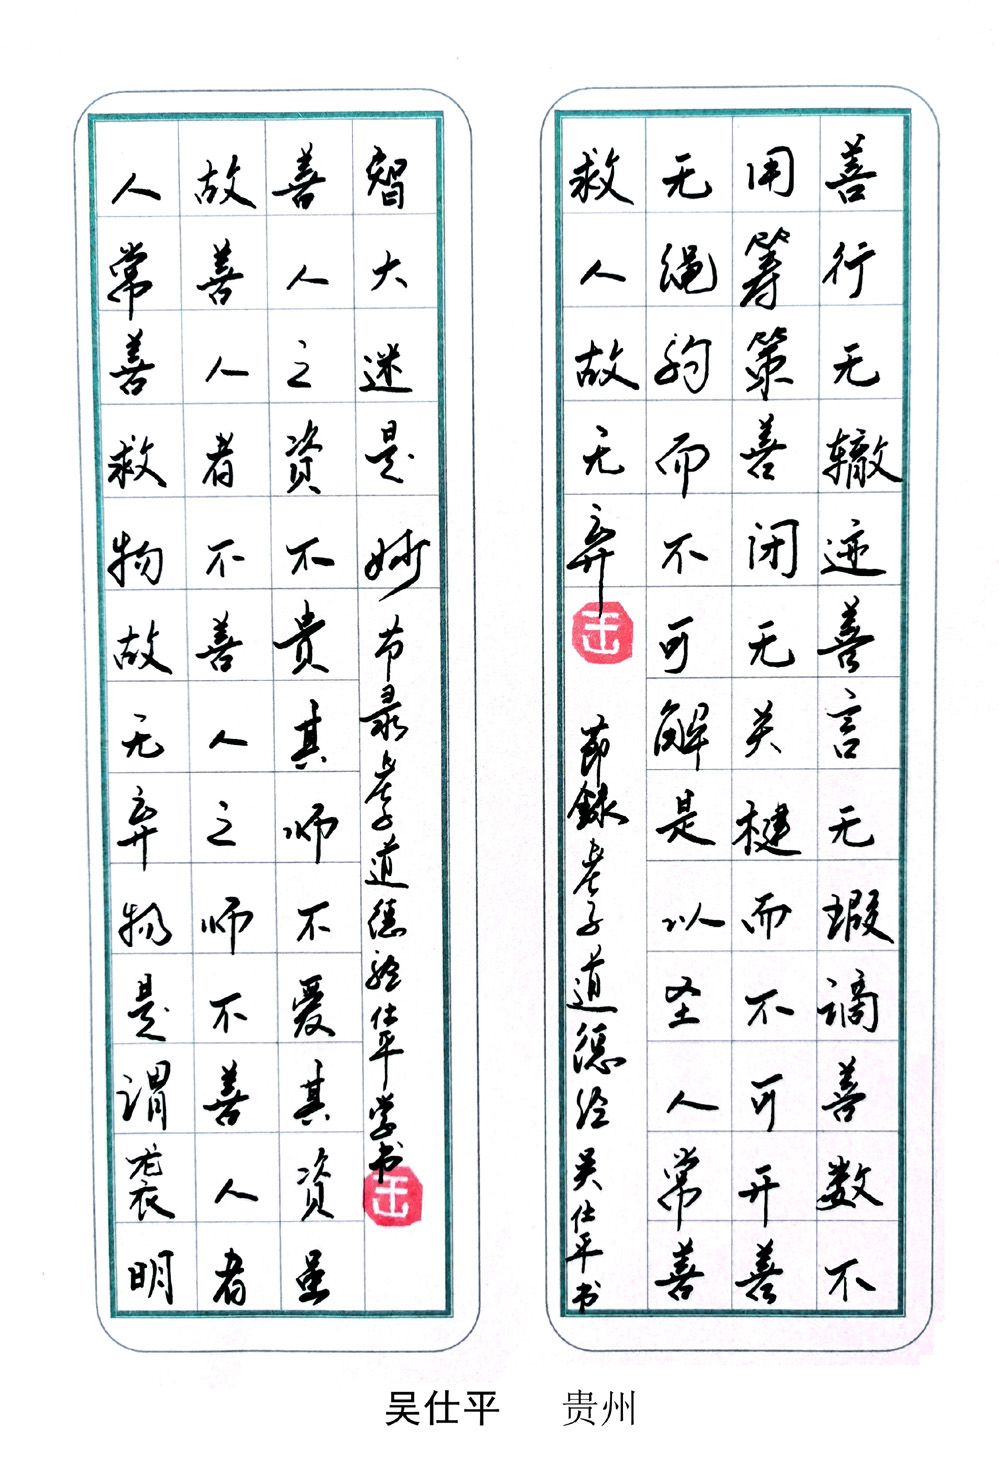 善行无辙迹善言无瑕谪善数不
用筹策善闭无关楗而不可开善
无绳约而不可解是以圣人常善
救人故无弃
節録老子道德经吴仕平书
人常善救物故无弃物是谓袭明
故善人者不善人之师不善人者
善人之资不贵其师不爱其资虽
智大迷是妙
节录老子道德经仕平学书
吴仕平 贵州